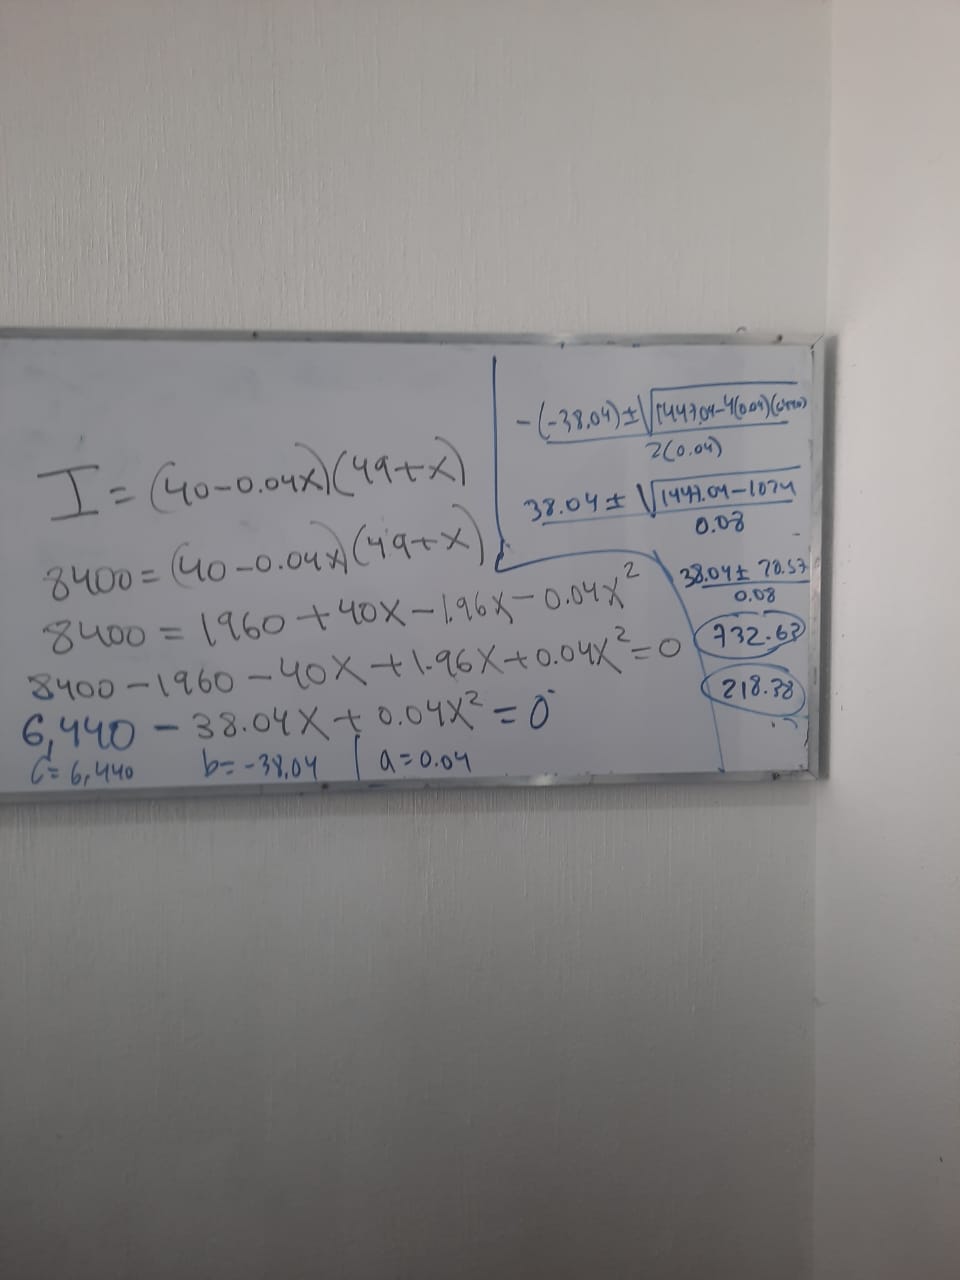 I = (40-0.04x)(49+x)
8400 = (40-0.04x)(49+x)
8400 = 1960 + 40x - 1.96x - 0.04x²
8400 - 1960 - 40x + 1.96x + 0.04x² = 0
6,440 - 38.04x + 0.04x² = 0
C = 6,440 b = -38.04 | a = 0.04
-(-38.04) ± √1447.04-4(0.04)(6440)
2(0.04)
38.04 ± √1447.04-1074
0.08
38.04 ± 20.57
0.08
732.63
218.38